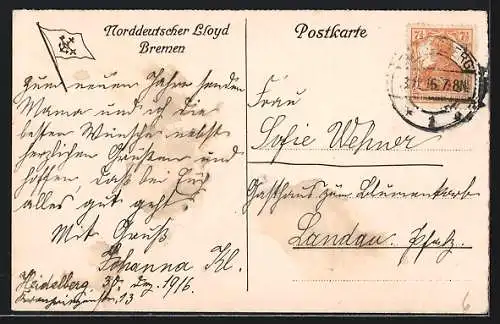 Norddeutscher Lloyd
Bremen
Postkarte
7½ 7½
Zum neuen Jahre senden
Mama und ich die
besten Wünsche nebst
herzlichen Grüßen und
hoffen, daß bei Euch
alles gut geht.
Mit Gruß
Johanna Kl.
Heidelberg, 30. Dez. 1916.
13
Frau
Sofie Wehner
Gasthaus zum Blumenkorb
Landau. Pfalz.
6